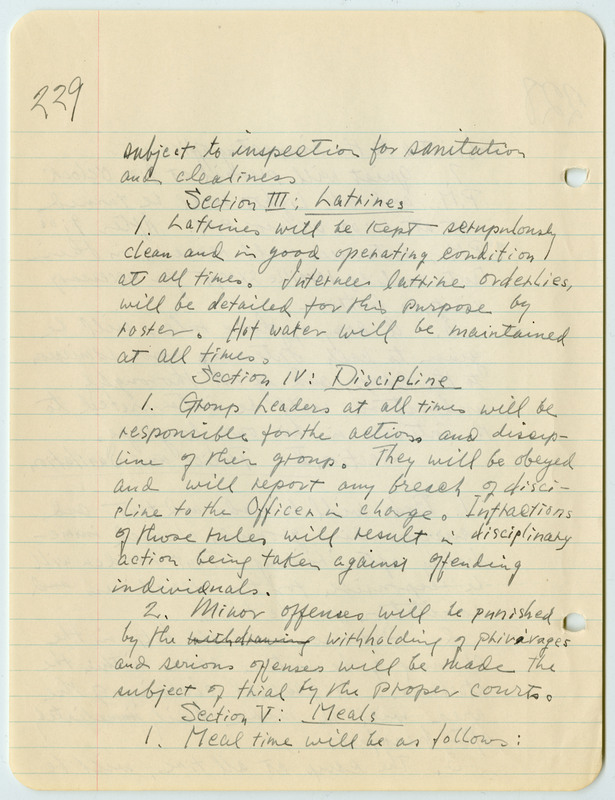 229
subject to inspection for sanitation
and cleaness
Section III: Latrines
1. Latrines will be kept scrupulously
clean and in good operating condition
at all times. Internees latrine orderlies,
will be detailed for this purpose by
roster. Hot water will be maintained
at all times.
Section IV: Discipline
1. Group Leaders at all times will be
responsible for the actions and discip-
line of their group. They will be obeyed
and will report any breach of disci-
pline to the Officer in charge. Infractions
of those rules will result in disciplinary
action being taken against offending
individuals.
2. Minor offenses will be punished
by the withdrawing withholding of
and serious offenses will be made the
subject of trial by the proper courts.
Section V: Meals
1. Meal time will be as follows: